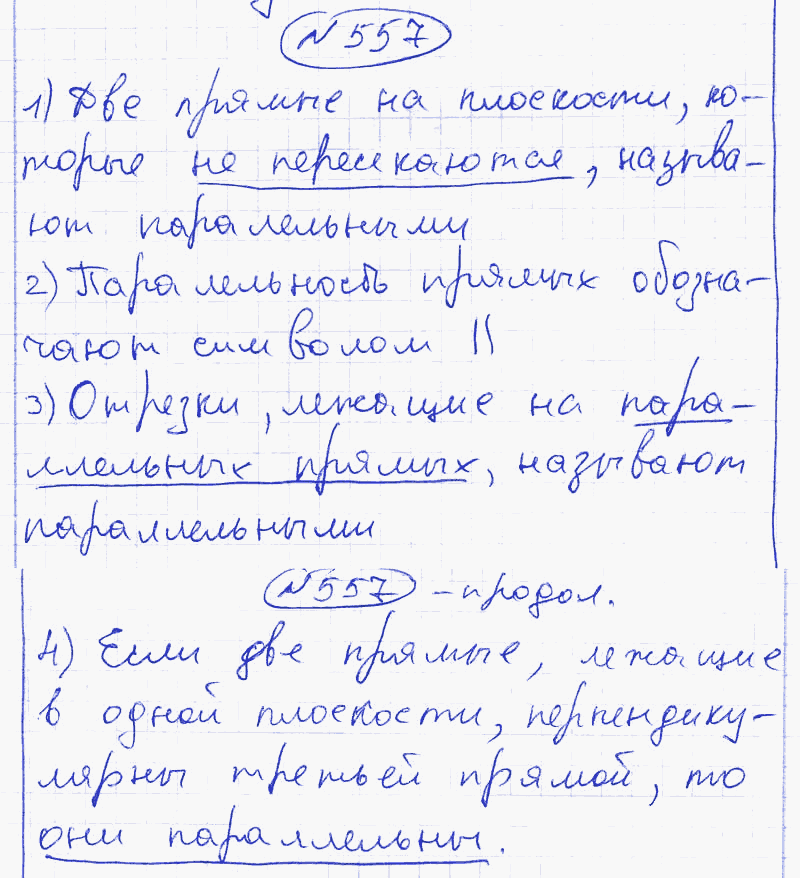 № 557
1) Две прямые на плоскости, ко-
торые не пересекаются, называ-
ют паралельными
2) Паралельность прямых обозна-
чают символом ||
3) Отрезки, лежащие на пара-
ллельных прямых, называют
параллельными
№ 557 - продол.
4) Если две прямые, лежащие
в одной плоскости, перпендику-
лярны третьей прямой, то
они параллельны.